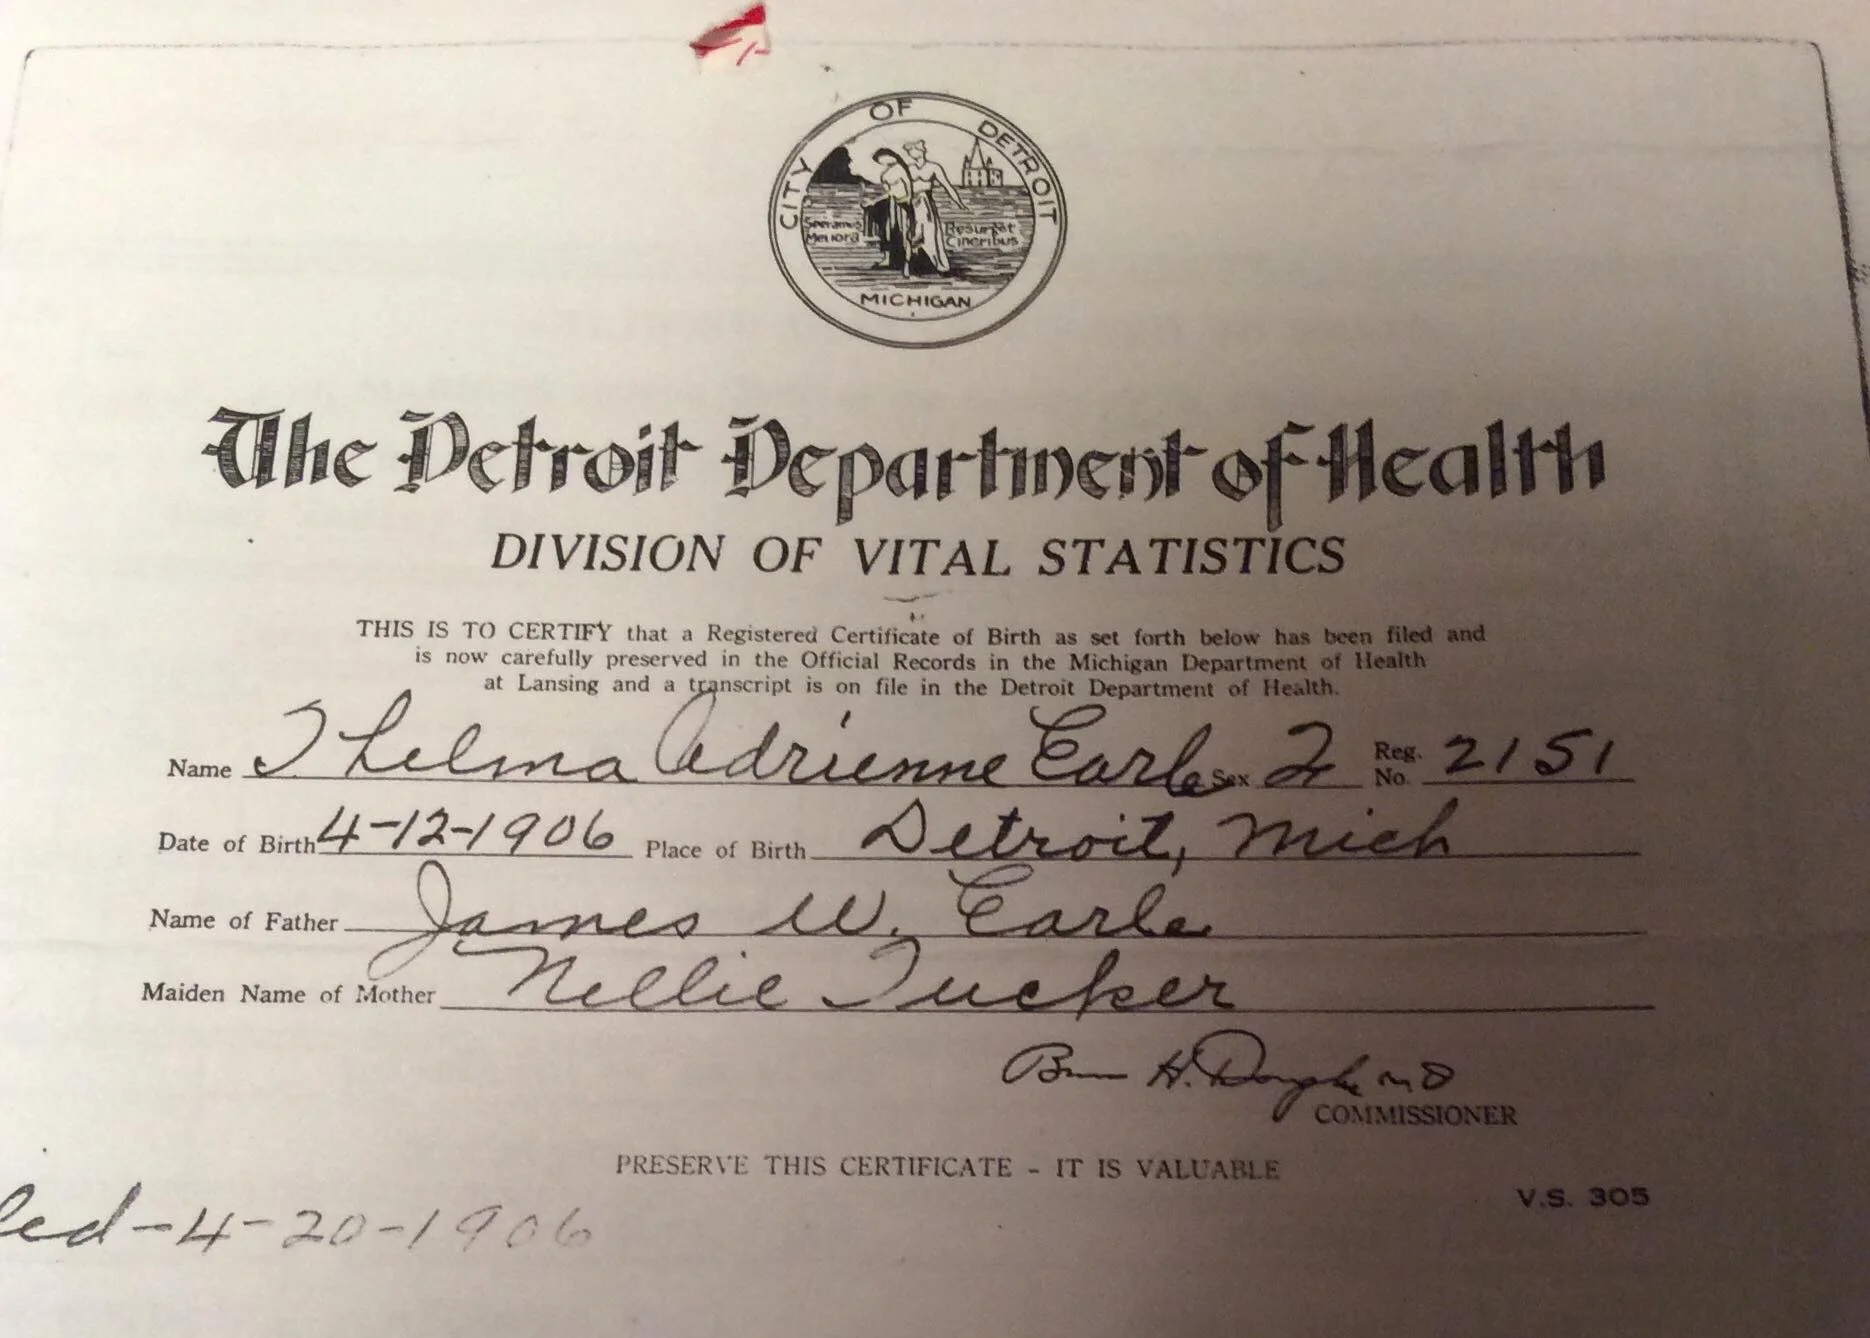 CITY OF DETROIT
Speramus Resurget
Meliora Cineribus
MICHIGAN
The Detroit Department of Health
DIVISION OF VITAL STATISTICS
THIS IS TO CERTIFY that a Registered Certificate of Birth as set forth below has been filed and
is now carefully preserved in the Official Records in the Michigan Department of Health
at Lansing and a transcript is on file in the Detroit Department of Health.
Name Thelma Adrienne Earle Sex F Reg. No. 2151
Date of Birth 4-12-1906 Place of Birth Detroit, Mich
Name of Father James W. Earle
Maiden Name of Mother Nellie Tucker
H. MD
COMMISSIONER
PRESERVE THIS CERTIFICATE - IT IS VALUABLE
V.S. 305
led-4-20-1906